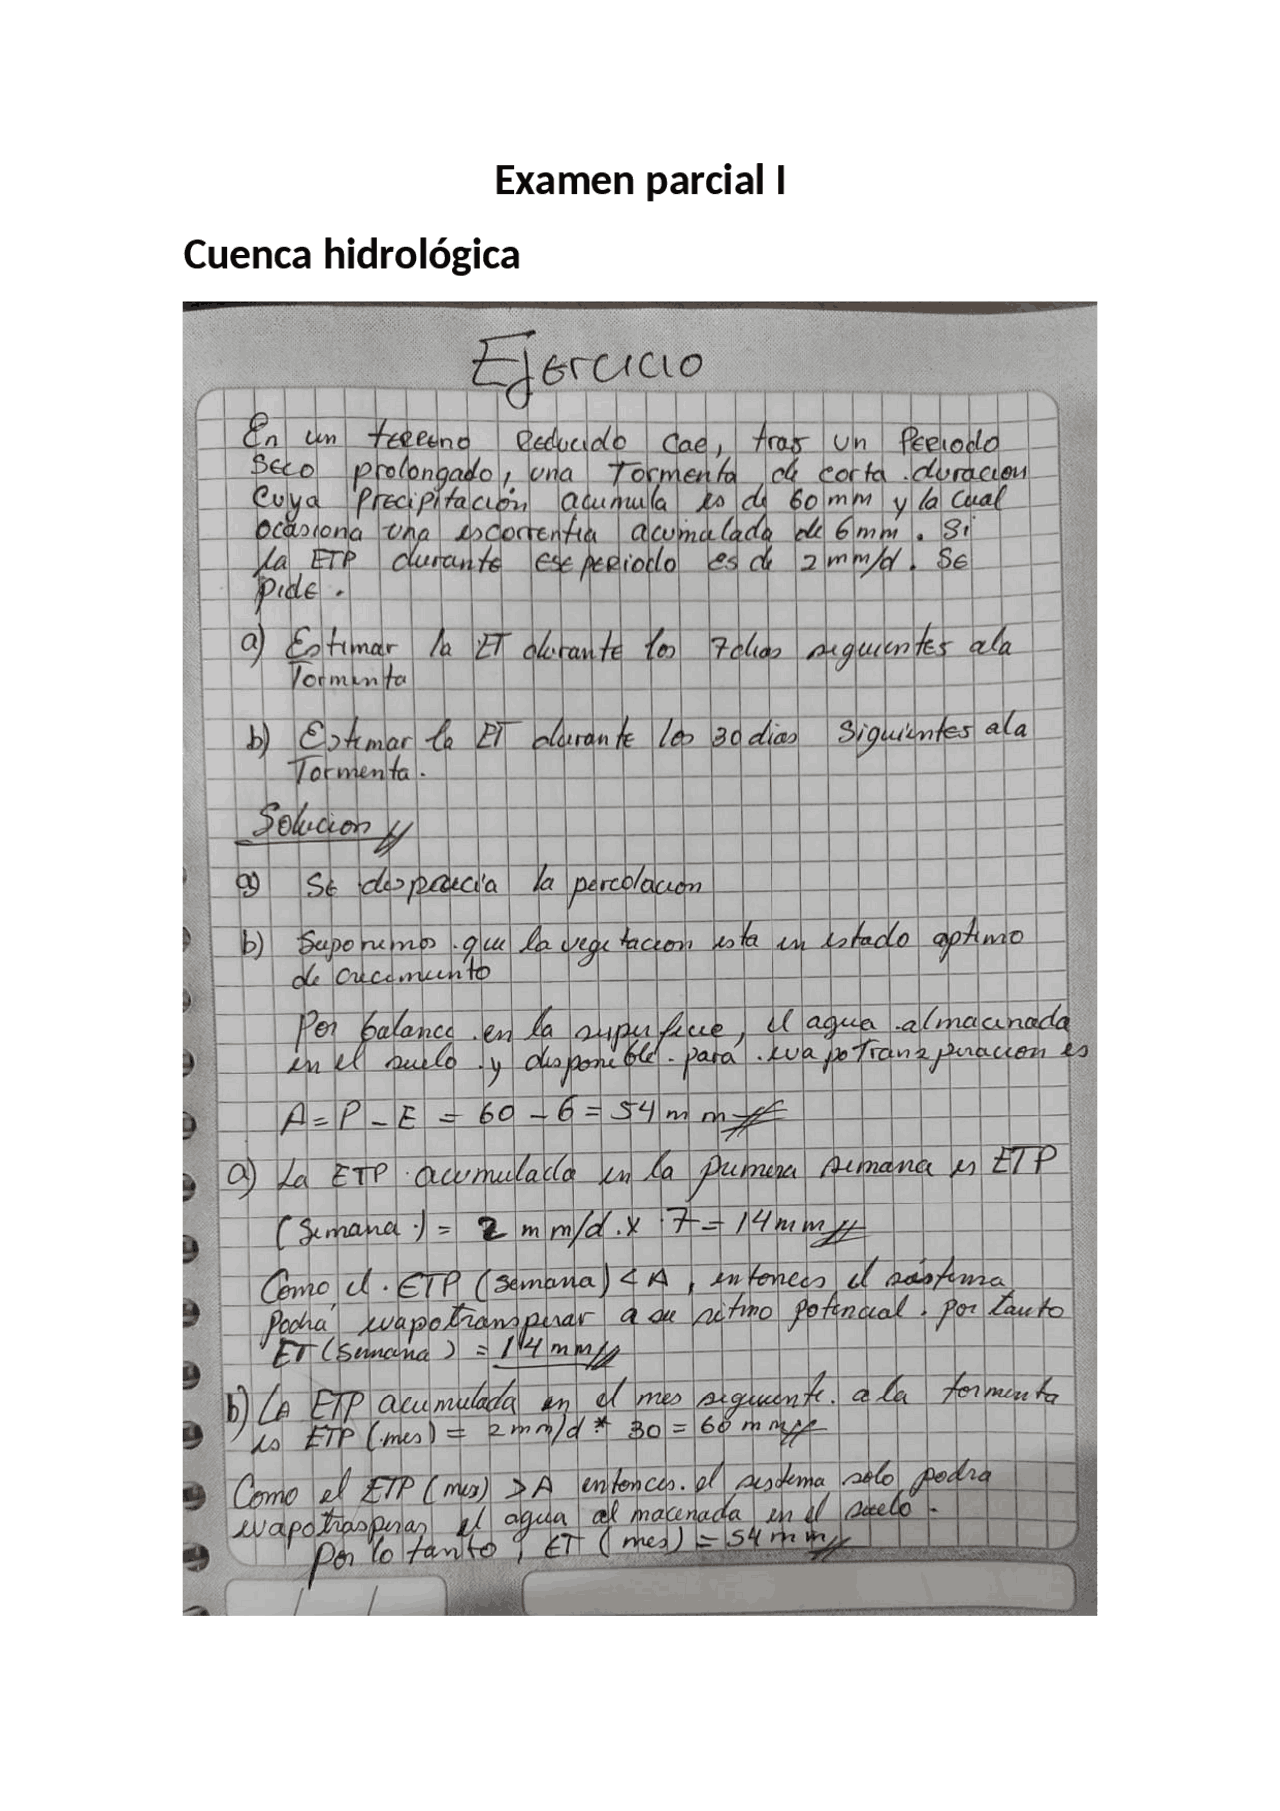 Examen parcial I
Cuenca hidrológica
Ejercicio
En un terreno reducido cae, tras un Periodo
Seco prolongado, una Tormenta de corta duracion
Cuya Precipitación acumula es de 60 mm y la cual
ocasiona una escorrentia acumulada de 6mm. Si
la ETP durante ese periodo es de 2mm/d. SE
pide.
a) Estimar la ET durante los 7 dias siguientes ala
Tormenta
b) Estimar la ET durante los 30 dias Siguientes ala
Tormenta.
Solucion
a) SE desprecia la percolacion
b) Suponemos que la vegetacion esta en estado optimo
de crecimiento
Por balance en la superficie, el agua almacenada
en el suelo y disponible para evapoTranzpiracion es
A = P - E = 60 - 6 = 54 mm
a) La ETP acumulada en la primera semana es ETP
(Semana) = 2 mm/d x 7 = 14mm
Como el ETP (semana) < A, entonces el sistema
Podra evapotranspirar a su ritmo potencial. por tanto
ET (semana) = 14 mm
b) LA ETP acumulada en el mes siguiente a la tormenta
es ETP (mes) = 2mm/d * 30 = 60 mm
Como el ETP (mes) > A entonces el sistema solo podra
evapotrasperar el agua al macenada en el suelo.
Por lo tanto, ET (mes) = 54 mm